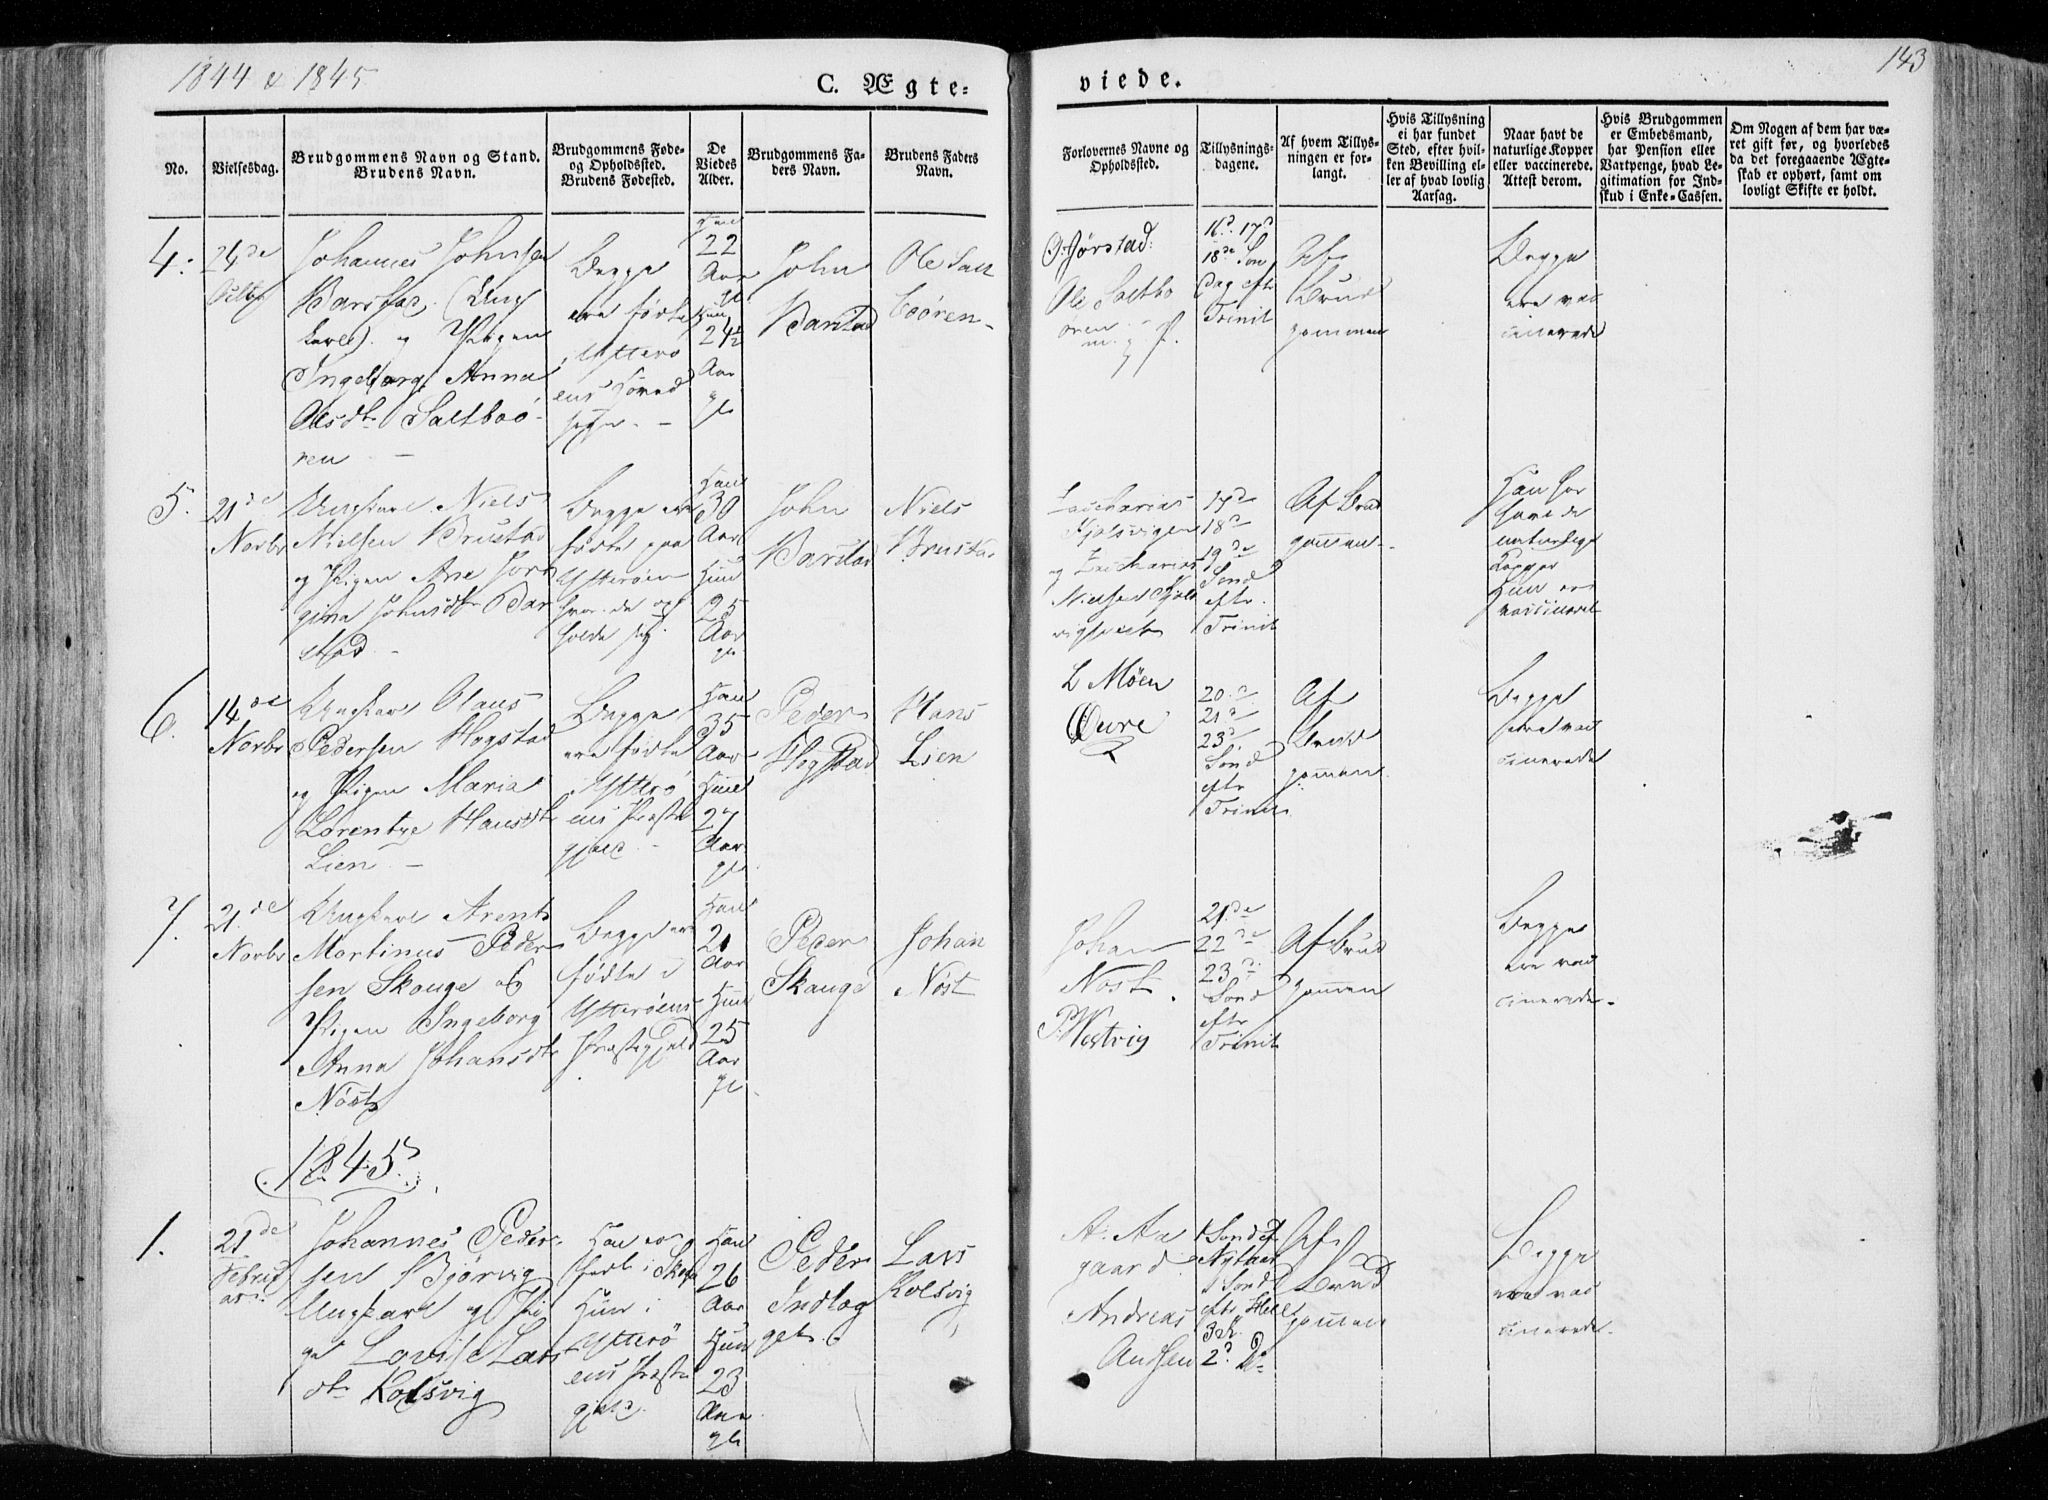 1844 & 1845
C. Ægte=
viede.
143
No.
Vielsesdag.
Brudgommens Navn og Stand.
Brudens Navn.
Brudgommens Føde-
og Opholdssted.
Brudens Fødested.
De
Viedes
Alder.
Brudgommens Fa-
ders Navn.
Brudens Faders
Navn.
Forlovernes Navne og
Opholdssted.
Tillysnings-
dagene.
Af hvem Tillys-
ningen er for-
langt.
Hvis Tillysning
ei har fundet
Sted, efter hvil-
ken Bevilling el-
ler af hvad lovlig
Aarsag.
Naar havt de
naturlige Kopper
eller vaccinerede.
Attest derom.
Hvis Brudgommen
er Embedsmand,
har Pension eller
Vartpenge, hvad Le-
gitimation for Ind-
skud i Enke-Cassen.
Om Nogen af dem har væ-
ret gift før, og hvorledes
da det foregaaende Ægte-
skab er ophørt, samt om
lovligt Skifte er holdt.
4.
24de
Octbr
Johannes Johnsen
Barstad (Ung
karl) og Pigen
Ingeborg Anna
Olsdtr Saltboö-
ren
Begge
ere födte
i Ytterö
ens Hoved
sogn
Han
22
Aar
gl
Hun
24½
Aar
gl
John
Barstad
Ole Salt
boören
P. Jörstad
Ole Saltbo
ören
16d 17d
18de Søn
Dag eftr
Trinit
Af
Brud
gommen
Begge
ere vac
cinerede
5.
21de
Novbr
Ungkarl Niels
Nielsen Brustad
og Pigen Ane Jör
gina Johnsdtr Bar
stad
Begge ere
födte paa
Ytteröen
hvor de op
holde sig
Han
30
Aar
Hun
25
Aar
gl.
John
Barstad
Niels
Brustad
Zacharias
Hjelsvigen
og Zacharias
Nielsen Hjels
vig
17de
18d
19de
Sønd
eftr
Trinit
Af Brud
gommen
Han har
havt de
naturlige
Kopper
Hun er
vaccineret
6.
14de
Novbr
Ungkarl Olaus
Pedersen Hogstad
og Pigen Maria
Lorentze Hansdtr
Lien
Begge
ere födte
i Ytterö
ens Præste
gjeld
Han
35
Aar
Hun
27
Aar
gl.
Peder
Hogstad
Hans
Lien
L Möen
Öure
20d
21d
23d
Sønd
eftr
Trinit
Af
Brud
gommen
Begge
ere vac
cinerede
7.
21de
Novbr
Ungkarl Arent
Martinus Peder
sen Skauge og
Pigen Ingeborg
Anna Johansdtr
Nöst
Begge ere
födte i
Ytteröens
Præstegjeld
Han
21
Aar
Hun
25
Aar
gl
Peder
Skauge
Johan
Nöst
Johan
Nöst
P. Westvig
21de
22de
23d
Sønd
eftr
Trinit
Af Brud
gommen
Begge
ere vac
cinerede
1845
1.
21de
Februar
Johannes Peder-
sen Bjørvig
Ungkarl og Pi
ge Lovise Lars
dtr Kolsvig
Han er
födt i Skogn
Hun i
Ytterö
ens Præste
gjeld.
Han
26
Aar
Hun
23
Aar
gl
Peder
Indlog
get
Lars
Kolsvig
A. Aa
gaard
Andreas
1 Sønd eft
Nytaar
1 Sønd
eftr Hell
3 K.
2d Do
Af
Brud
gommen
Begge
ere vac
cinerede